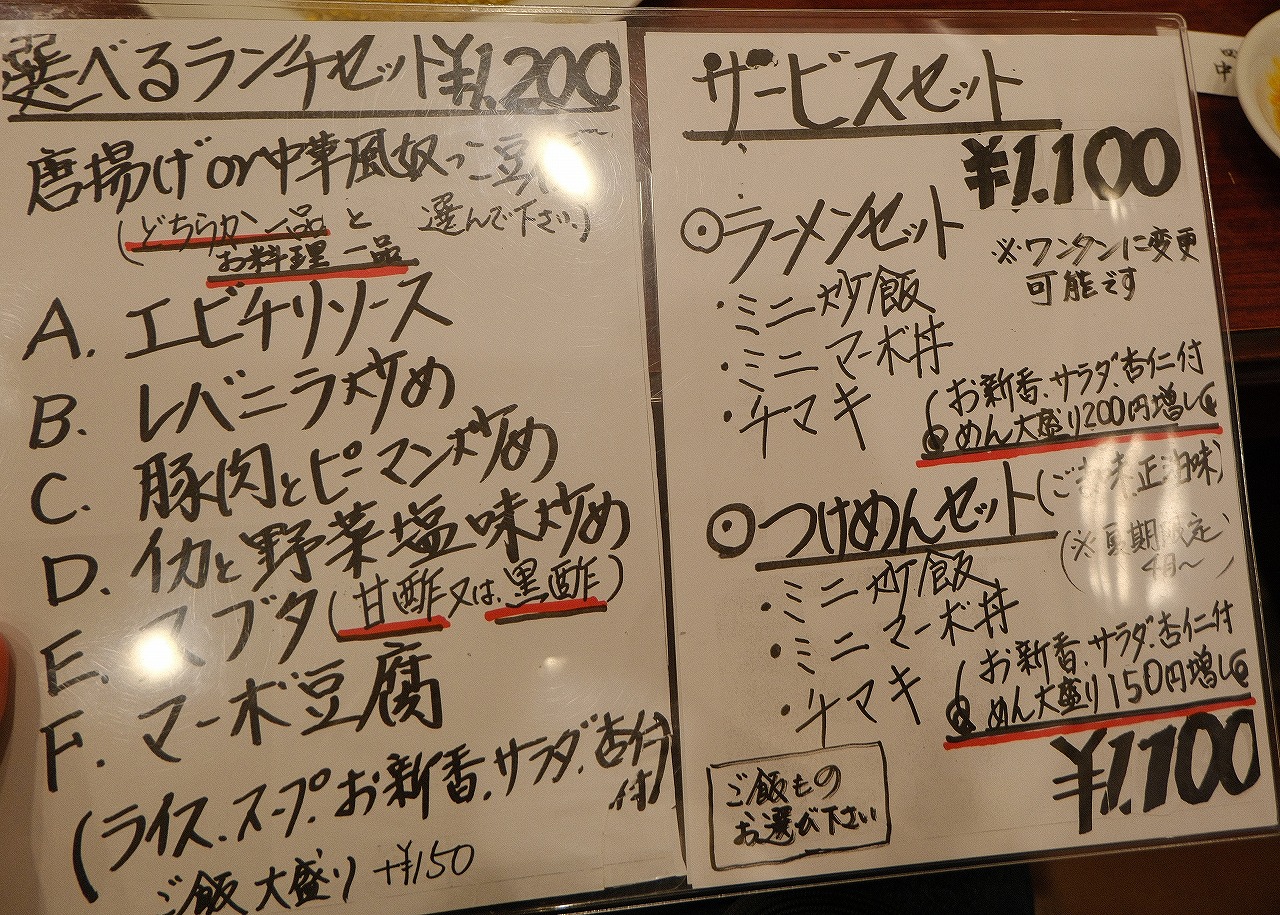 選べるランチセット¥1,200
唐揚げor中華風奴っこ豆
(どちらか一品と
お料理一品
選んで下さい)
A. エビチリソース
B. レバニラ炒め
C. 豚肉とピーマン炒め
D. イカと野菜塩味炒め
E. スブタ(甘酢又は黒酢)
F. マーボ豆腐
(ライス.スープ.お新香.サラダ.杏仁付
付)
ご飯大盛り +¥150
サービスセット
¥1.100
◎ラーメンセット
※ワンタンに変更
可能です
・ミニ炒飯
・ミニマーボ丼
・チマキ
(お新香.サラダ.杏仁付
めん大盛り200円増し
◎つけめんセット(ごま正油味)
(※短期限定
4月〜)
・ミニ炒飯
・ミニマーボ丼
・チマキ
(お新香.サラダ.杏仁付
めん大盛り150円増し
¥1.100
ご飯もの
お選び下さい
田中